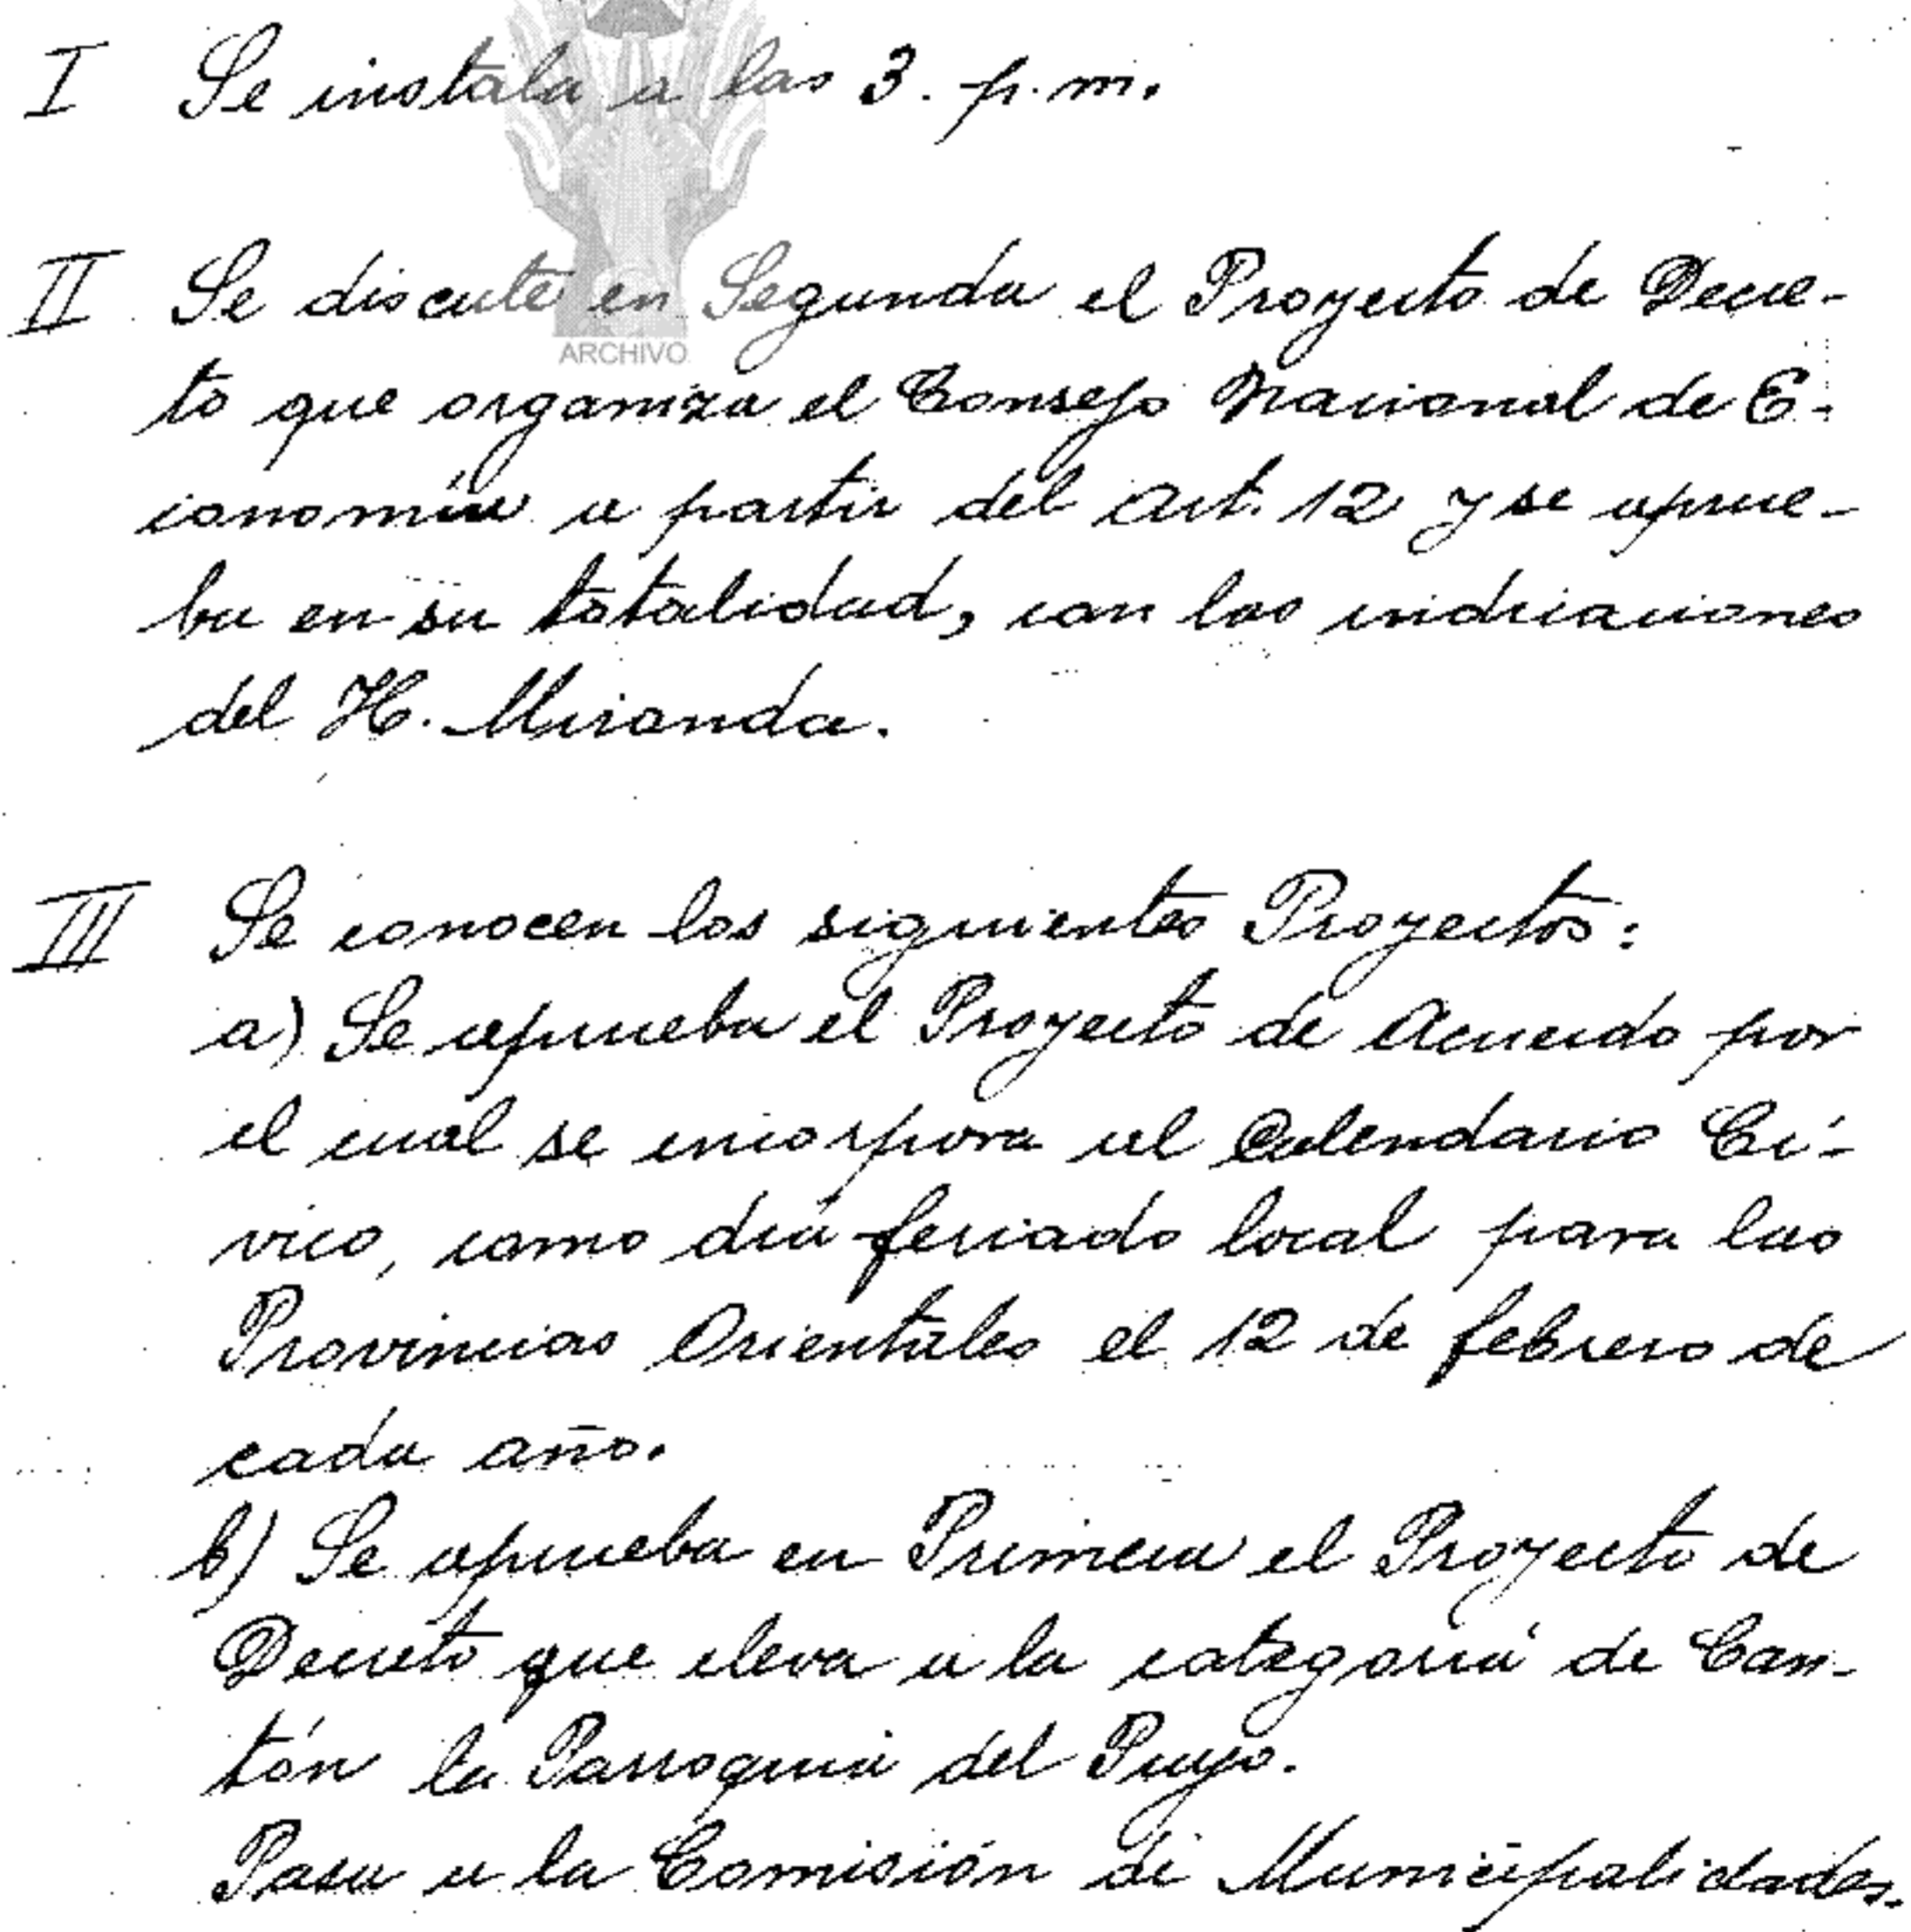 I Se instala a las 3. p.m.
ARCHIVO
II Se discute en Segunda el Proyecto de Decre-
to que organiza el Consejo Nacional de E-
conomía a partir del Art. 12 y se aprue-
ba en su totalidad, con las indicaciones
del H. Miranda.
III Se conocen los siguientes Proyectos:
a) Se aprueba el Proyecto de Acuerdo por
el cual se incorpora al Calendario Cí-
vico, como día feriado local para las
Provincias Orientales el 12 de febrero de
cada año.
b) Se aprueba en Primera el Proyecto de
Decreto que eleva a la categoría de Can-
tón la Parroquia del Puyo.
Pasa a la Comisión de Municipalidades.